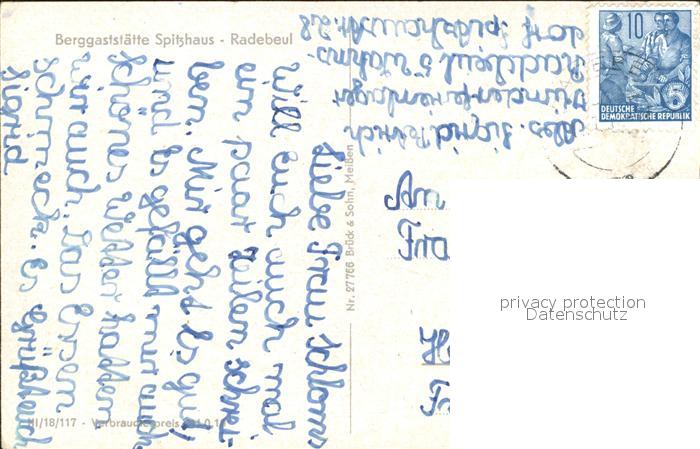 Berggaststätte Spitzhaus - Radebeul
Liebe Frau
will euch auch mal
ein paar Zeilen schrei-
ben. Mir geht es gut
und es gefällt mir auch
schönes Wetter hatten
wir auch. Das Essen
schmeckt. Es grüßt euch
Sigrid
Abs. Sigrid
Kinderferienlager
Radebeul 5 Wahns-
dorf Spitzhausstr.
Nr. 27766 Brück & Sohn, Meißen
III/18/117 - Verbraucherpreis
10
DEUTSCHE
DEMOKRATISCHE REPUBLIK
privacy protection
Datenschutz